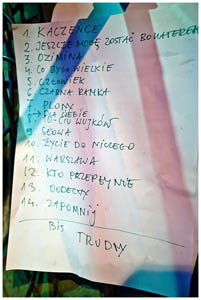 1. KACZEŃCE
2. JESZCZE MOGĘ ZOSTAĆ BOHATEREM
3. OZIMINA
4. CO BYŁO WIELKIE
5. CZŁOWIEK
6. CZARNA RAMKA
7. PLONY
→ DLA CIEBIE
8. 10-CIU WUJKÓW
9. SŁOWA
10. ŻYCIE DO NICZEGO
11. WARSZAWA
12. KTO PRZEPŁYNIE
13.
14. ZAPOMNIJ
BIS
TRUDNY